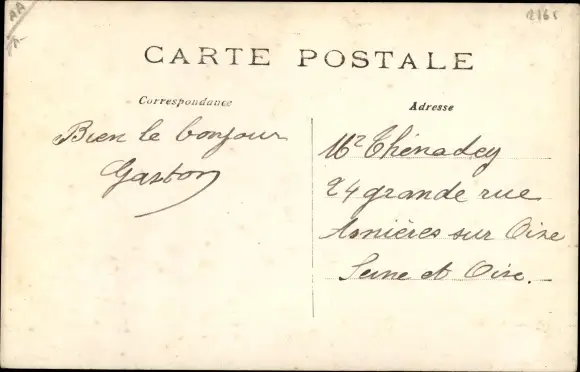 AA
2165
CARTE POSTALE
Correspondance
Adresse
Bien le bonjour
Gaston
Mr Thénadey
24 grande rue
Asnières sur Oise
Seine et Oise.